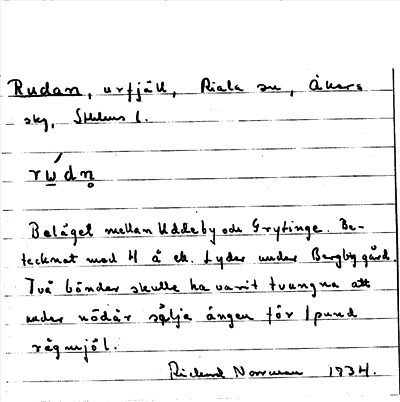 Rudan, urfjäll, Riala sn, Åkers
skg, Sthlms l.
rẃdn̥
Beläget mellan Uddeby och Grytinge. Be-
tecknat med H å ek. Lyder under Bergby gård.
Två bönder skulle ha varit tvungna att
under nödår sälja ängen för 1 pund
rågmjöl.
Rickard Norrman 1934.